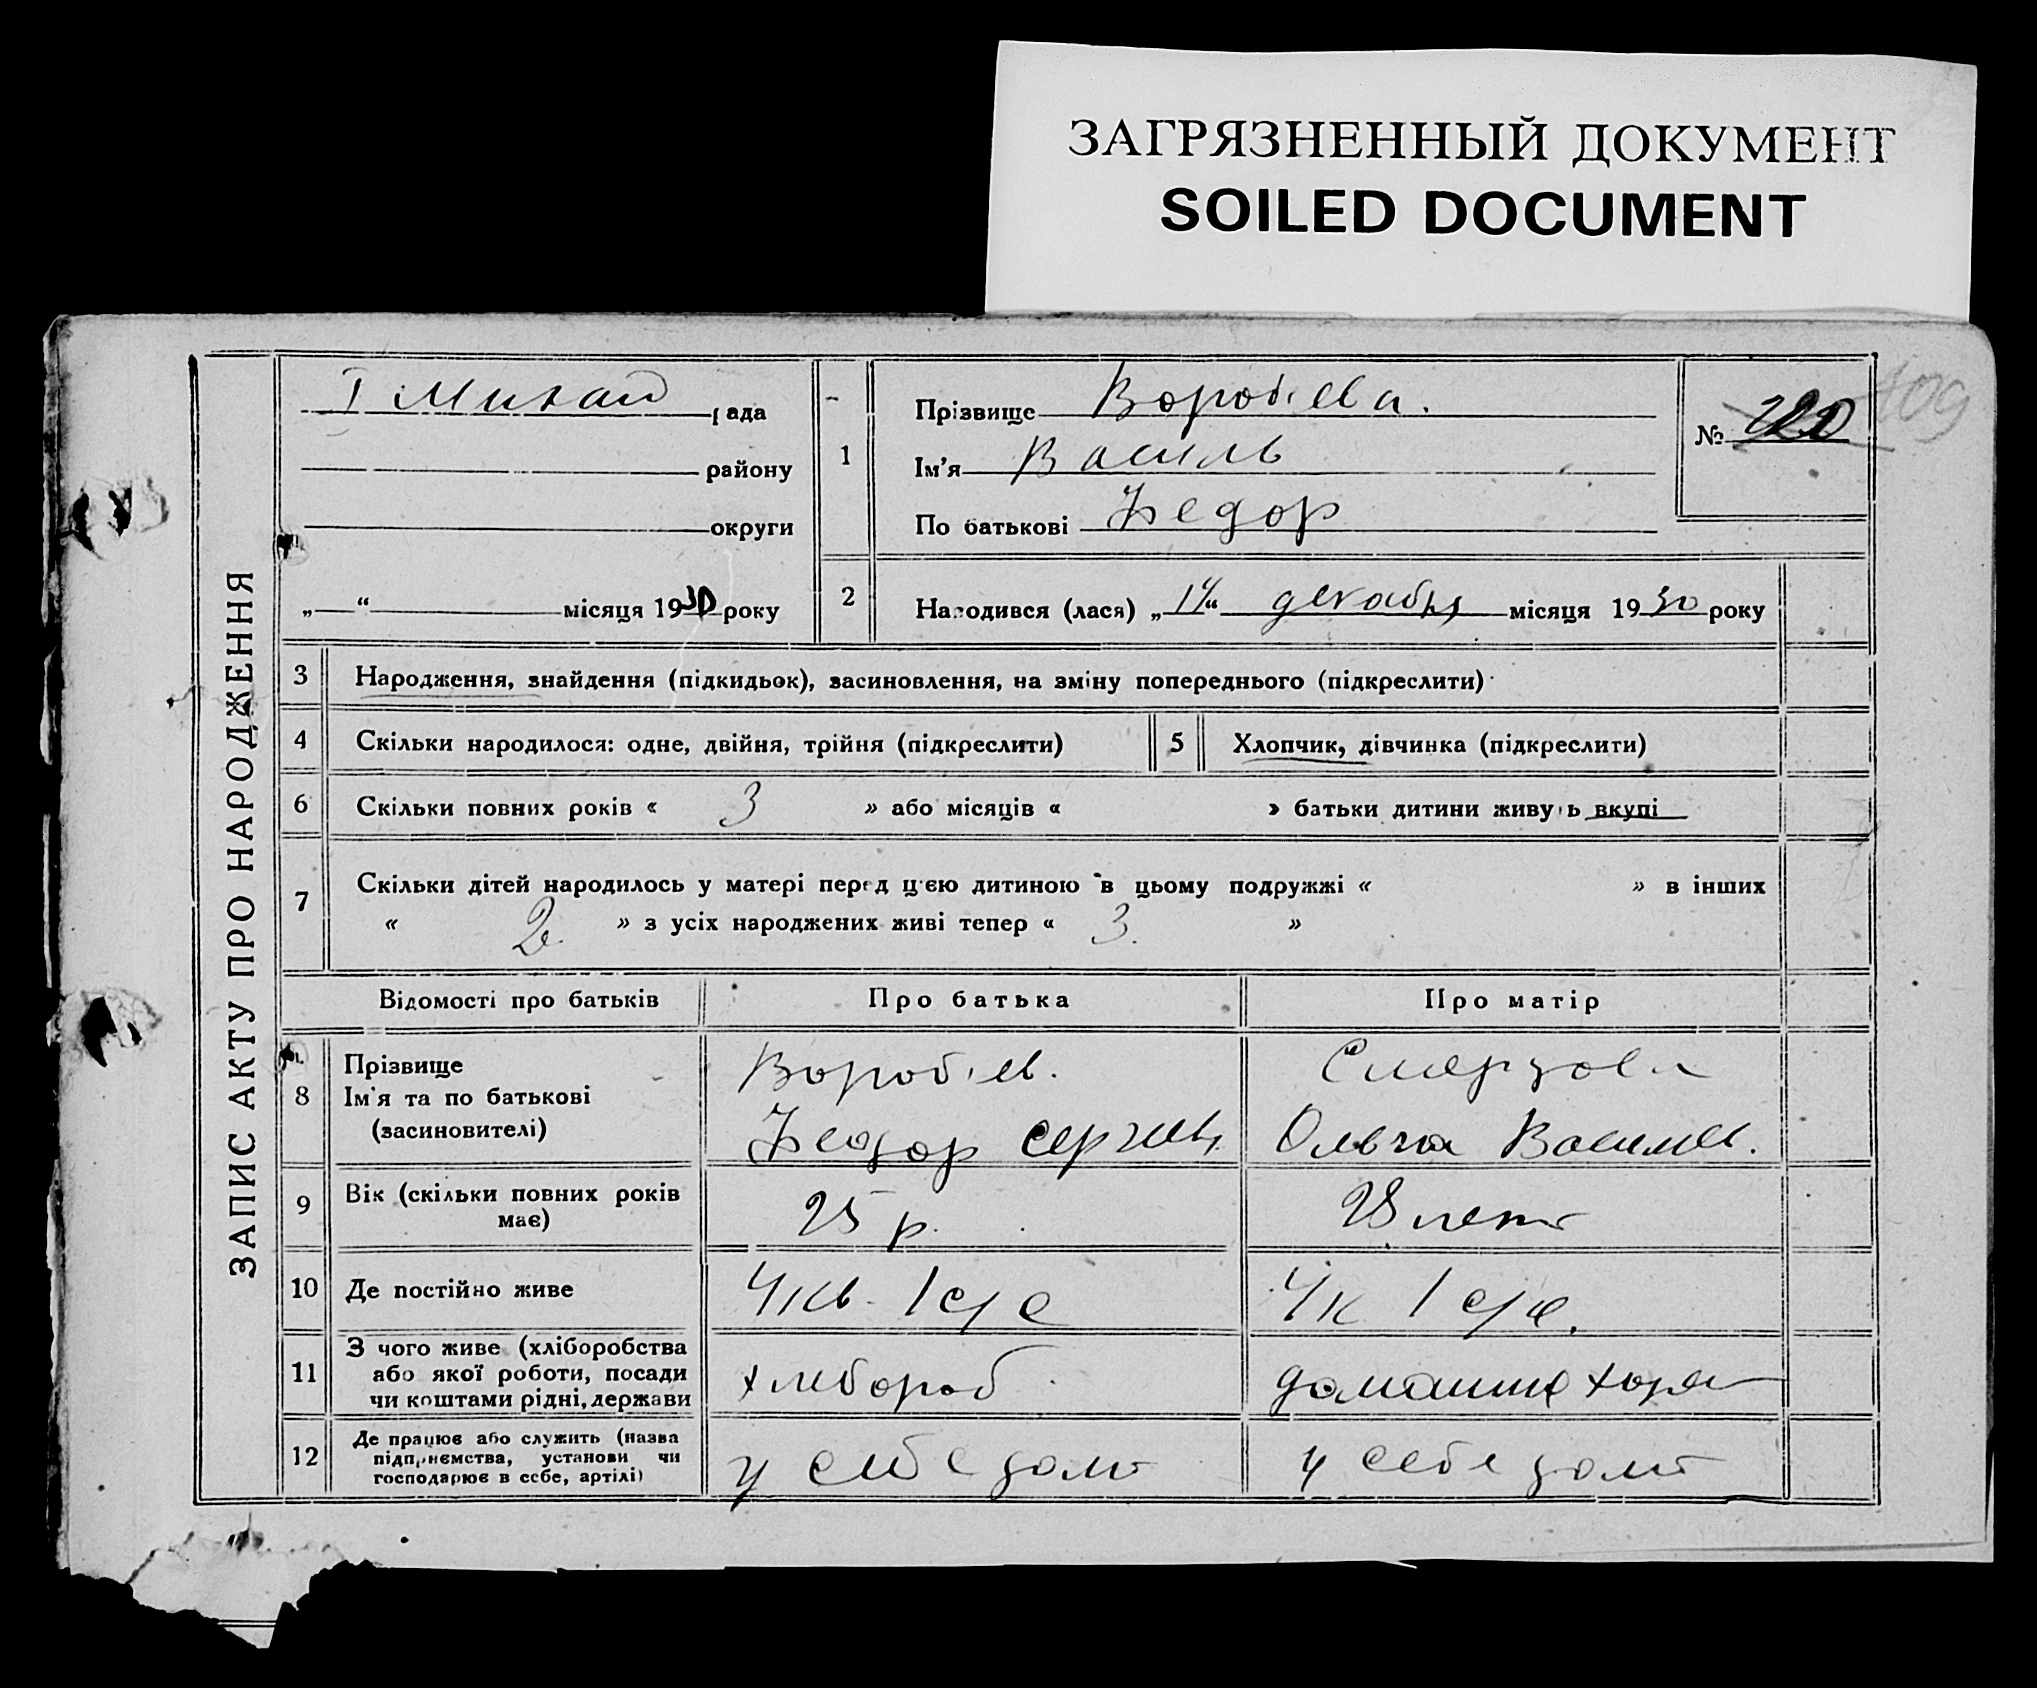 ЗАГРЯЗНЕННЫЙ ДОКУМЕНТ
SOILED DOCUMENT
109
ЗАПИС АКТУ ПРО НАРОДЖЕННЯ
рада
району
округи
„ “ місяця 1930 року
1
Прізвище Воробіева.
Ім’я Василь
По батькові Федор
№
2
Народився (лася) „14“ декабря місяця 1930 року
3
Народження, знайдення (підкидьок), засиновлення, на зміну попереднього (підкреслити)
4
Скільки народилося: одне, двійня, трійня (підкреслити)
5
Хлопчик, дівчинка (підкреслити)
6
Скільки повних років « 3 » або місяців « » батьки дитини живуть вкупі
7
Скільки дітей народилось у матері перед цією дитиною в цьому подружжі « » в інших
« 2 » з усіх народжених живі тепер « 3. »
Відомості про батьків
Про батька
Про матір
8
Прізвище
Ім’я та по батькові
(засиновителі)
Воробіев.
Федор Сергиев
Ольга Васильев.
9
Вік (скільки повних років
має)
25 р.
28 лет
10
Де постійно живе
4 кв. 1 с/с
4 к 1 с/с.
11
З чого живе (хліборобства
або якої роботи, посади
чи коштами рідні, держави
хлебороб
12
Де працює або служить (назва
підприємства, установи чи
господарює в себе, артілі)
у себе дома
у себе дома